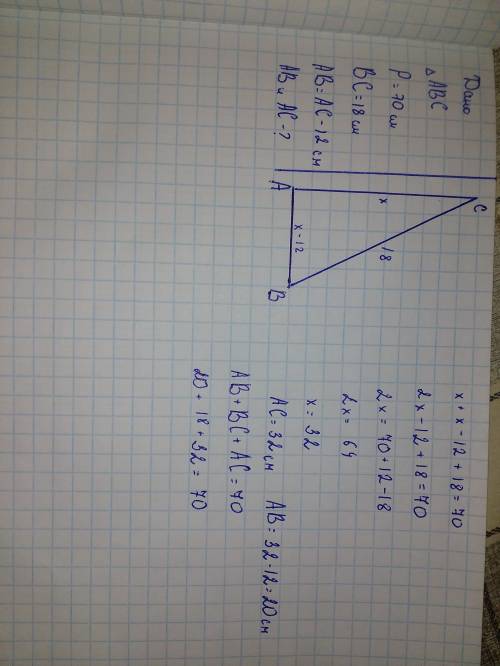 Дано
△ ABC
P = 70 см
BC = 18 см
AB = AC - 12 см
AB и AC - ?
C
x
18
A
x - 12
B
x + x - 12 + 18 = 70
2x - 12 + 18 = 70
2x = 70 + 12 - 18
2x = 64
x = 32
AC = 32 см AB = 32 - 12 = 20 см
AB + BC + AC = 70
20 + 18 + 32 = 70